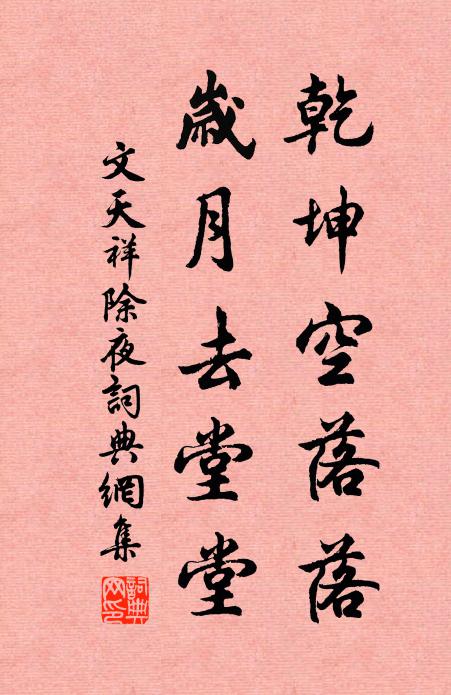 乾坤空落落
歲月去堂堂
文天祥除夜詞典網集
詞典网印